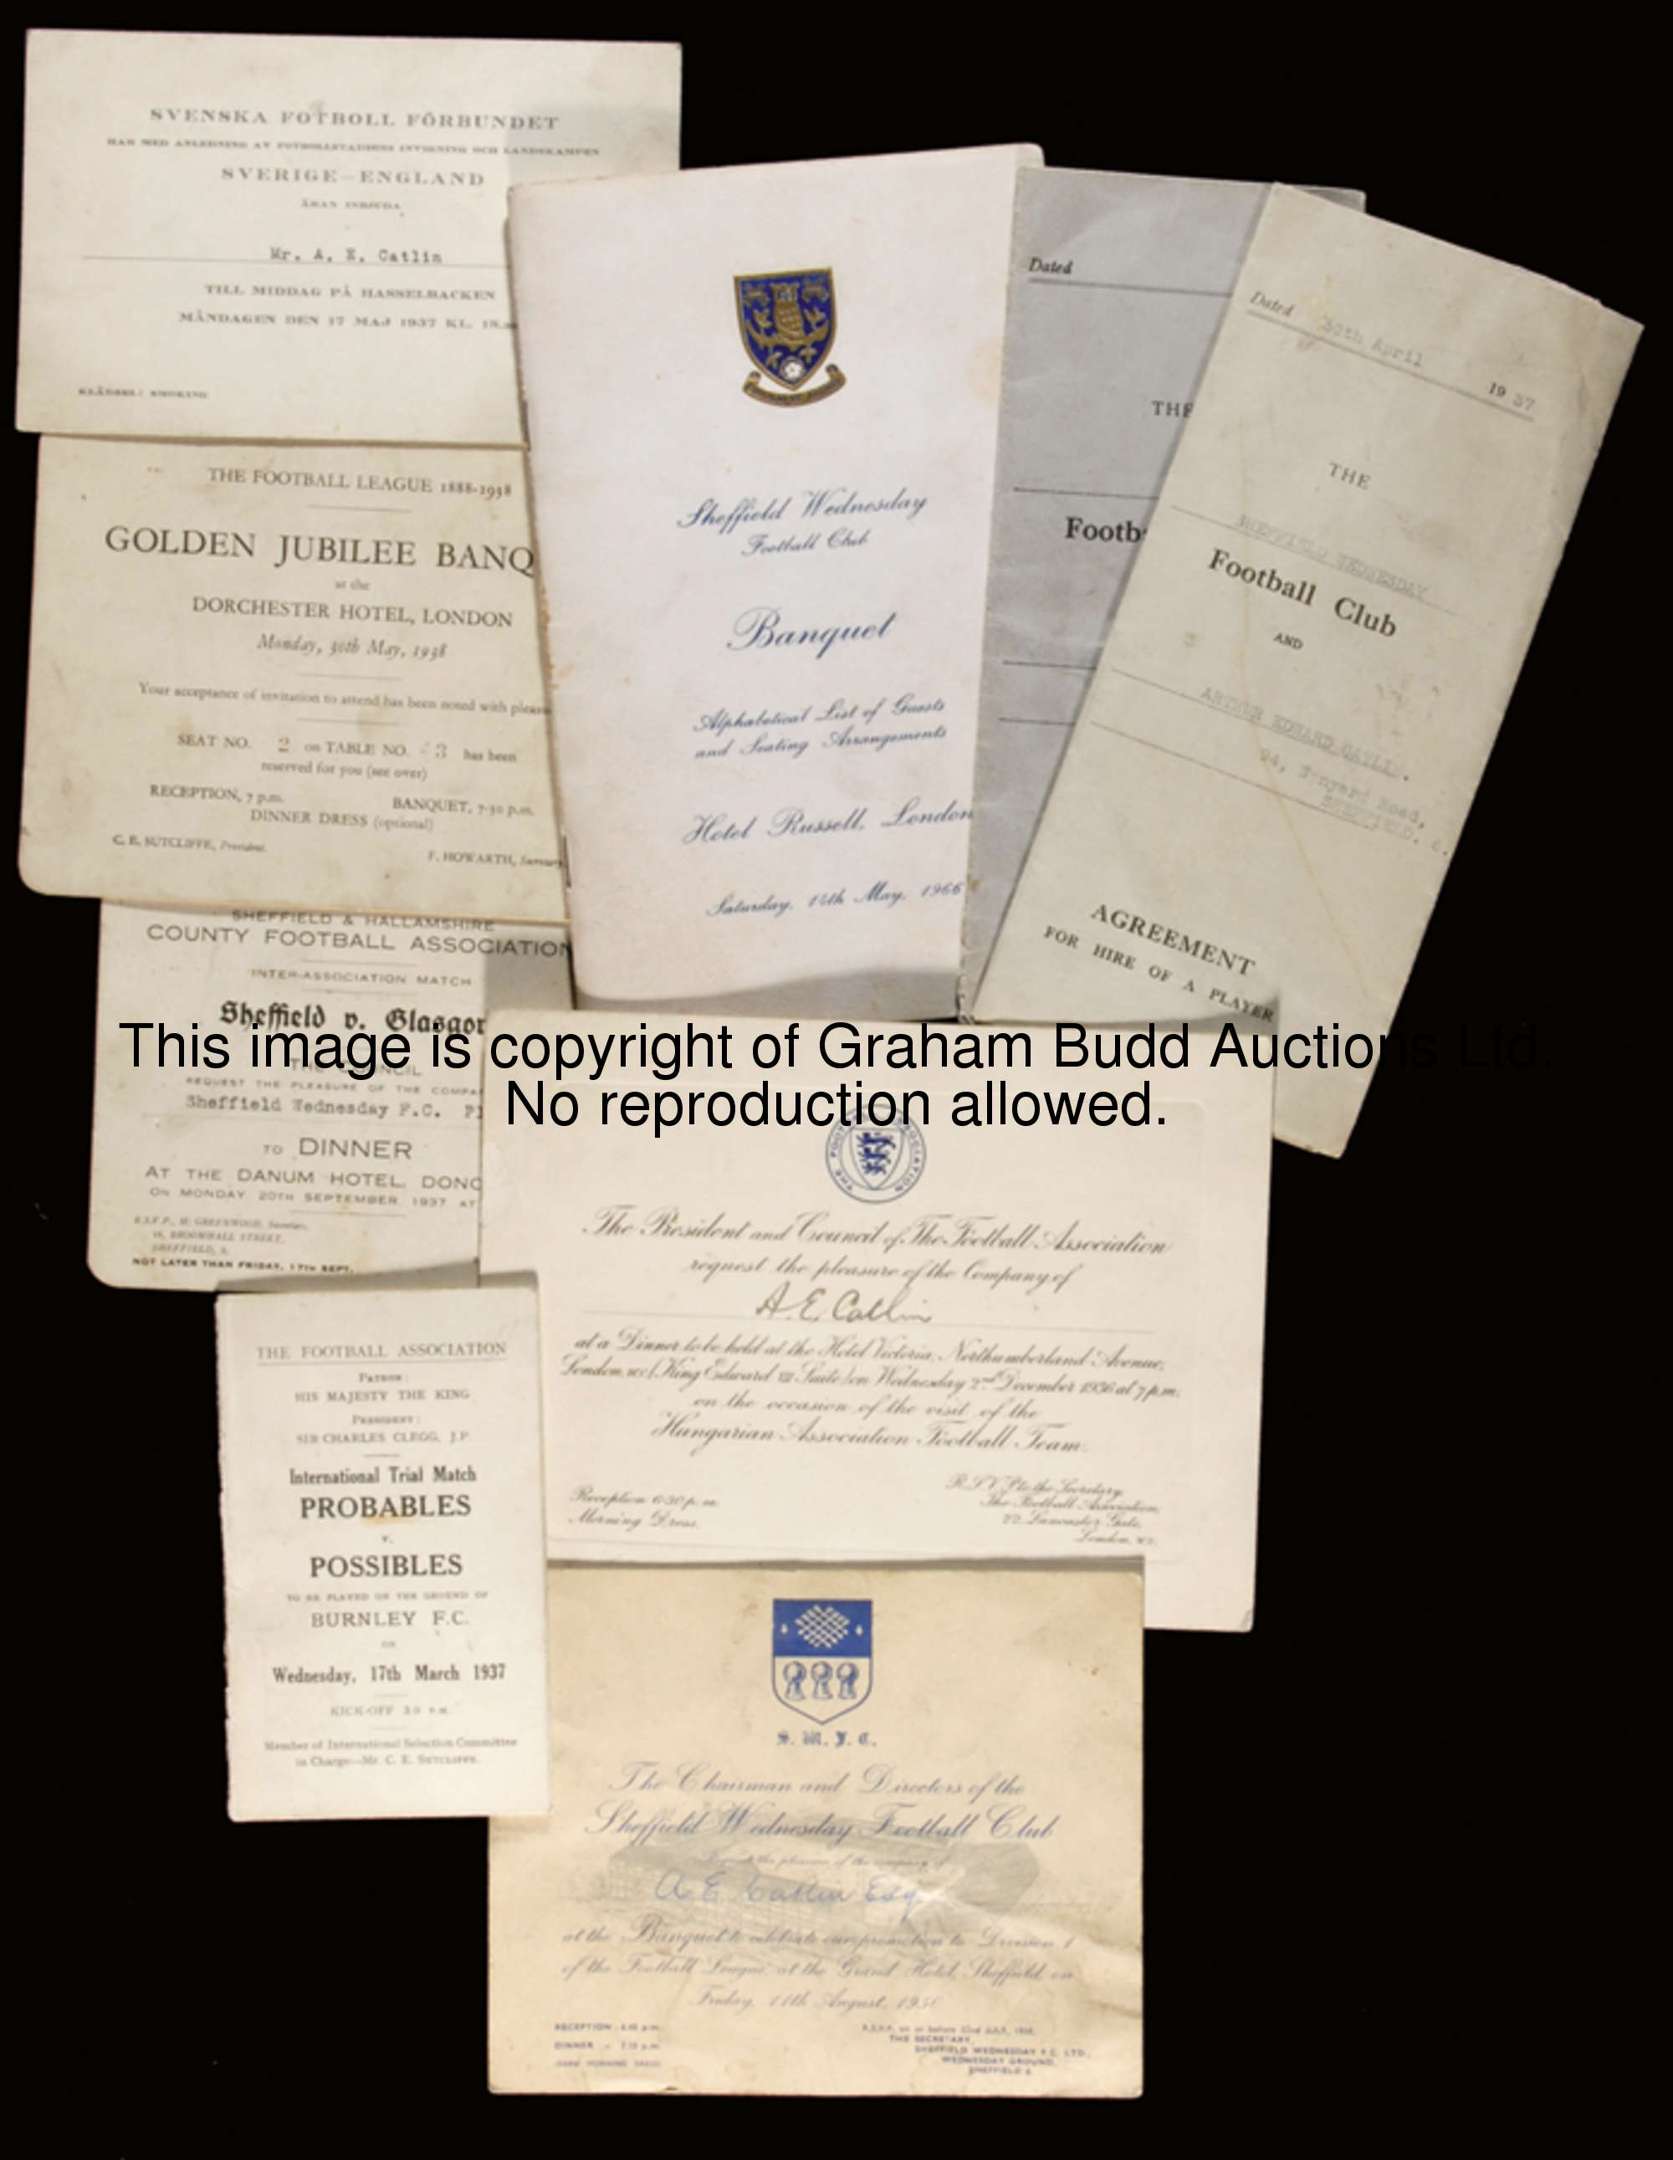 SVENSKA FOTBOLL FÖRBUNDET
HAR MED ANLEDNING AV FOTBOLLSTADIONS INVIGNING OCH LANDSKAMPEN
SVERIGE–ENGLAND
ÄRAN INBJUDA
Mr. A. E. Catlin
TILL MIDDAG PÅ HASSELBACKEN
MÅNDAGEN DEN 17 MAJ 1937 KL.
KLÄDSEL: SMOKING
THE FOOTBALL LEAGUE 1888-1938
GOLDEN JUBILEE BANQ
at the
DORCHESTER HOTEL, LONDON
Monday, 30th May, 1938
Your acceptance of invitation to attend has been noted with pleas
SEAT NO. 2 on TABLE NO. 3 has been
reserved for you (see over)
RECEPTION, 7 p.m.
BANQUET, 7-30 p.m.
DINNER DRESS (optional)
C. E. SUTCLIFFE, President.
F. HOWARTH, Secretary
SHEFFIELD & HALLAMSHIRE
COUNTY FOOTBALL ASSOCIATION
INTER-ASSOCIATION MATCH
Sheffield v. Glasgow
THE COUNCIL
REQUEST THE PLEASURE OF THE COMPA
Sheffield Wednesday F.C. Pl
TO DINNER
AT THE DANUM HOTEL, DONC
ON MONDAY 20TH SEPTEMBER 1937 AT
R.S.V.P., H. GREENWOOD, Secretary,
BROOMHALL STREET,
SHEFFIELD,
NOT LATER THAN FRIDAY, 17TH SEPT.
Sheffield Wednesday
Football Club
Banquet
Alphabetical List of Guests
and Seating Arrangements
Hotel Russell, London
Saturday, 14th May, 1966
Dated
THE
Footb
Dated 30th April 1937
THE
SHEFFIELD WEDNESDAY
Football Club
AND
ARTHUR EDWARD CATLIN.
Road,
SHEFFIELD, 6.
AGREEMENT
FOR HIRE OF A PLAYER
This image is copyright of Graham Budd Auctions Ltd.
No reproduction allowed.
THE FOOTBALL ASSOCIATION
The President and Council of The Football Association
request the pleasure of the Company of
A. E. Catlin
at a Dinner to be held at the Hotel Victoria, Northumberland Avenue,
London, WC1 (King Edward VII Suite) on Wednesday 2nd December 1936 at 7 p.m.
on the occasion of the visit of the
Hungarian Association Football Team.
Reception 6.30 p.m.
Morning Dress.
R.S.V.P. to the Secretary,
The Football Association,
22 Lancaster Gate,
London, W.2.
THE FOOTBALL ASSOCIATION
PATRON:
HIS MAJESTY THE KING
PRESIDENT:
SIR CHARLES CLEGG, J.P.
International Trial Match
PROBABLES
v.
POSSIBLES
TO BE PLAYED ON THE GROUND OF
BURNLEY F.C.
ON
Wednesday, 17th March 1937
KICK-OFF 3.0 P.M.
Member of International Selection Committee
in Charge—Mr. C. E. SUTCLIFFE.
S. W. F. C.
The Chairman and Directors of the
Sheffield Wednesday Football Club
Request the pleasure of the company of
A E Catlin Esq
at the Banquet to celebrate our promotion to Division 1
of the Football League at the Grand Hotel, Sheffield on
Friday, 11th August, 1950
RECEPTION
DINNER
R.S.V.P. on or before JULY,
THE SECRETARY,
SHEFFIELD WEDNESDAY F.C. LTD.,
WEDNESDAY GROUND,
SHEFFIELD 6